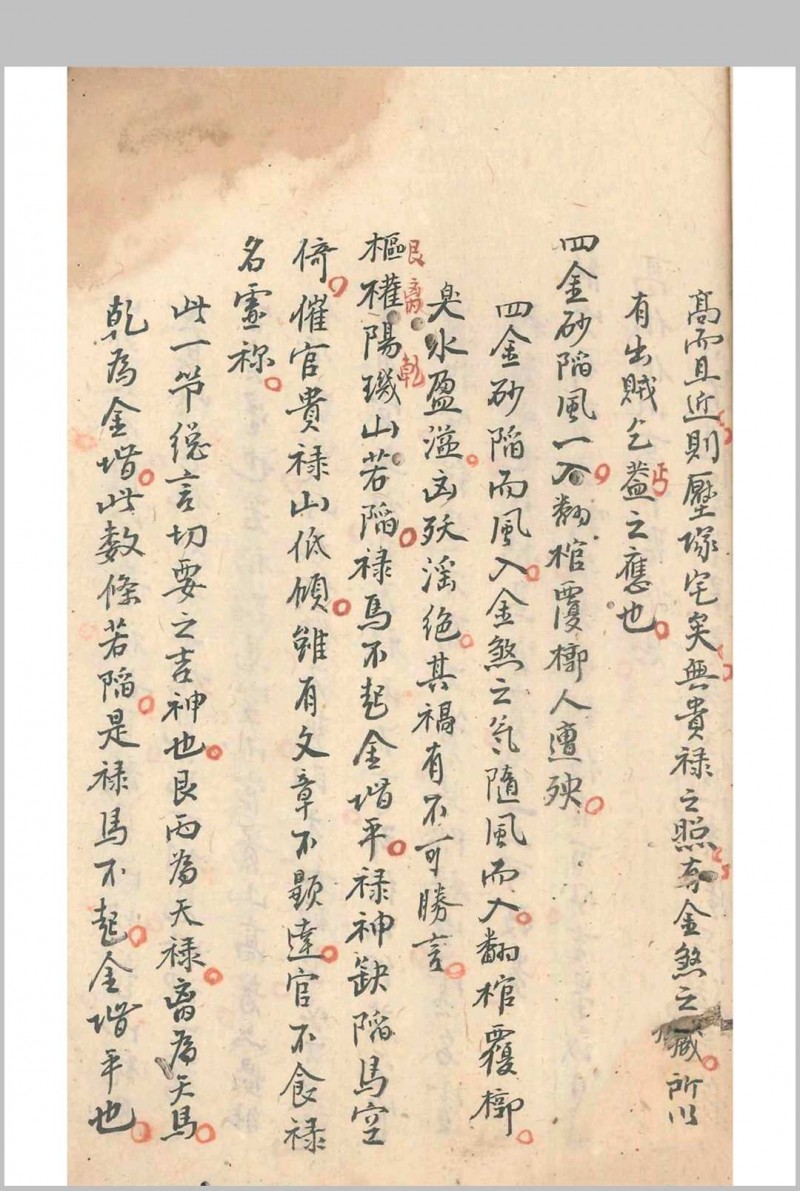 高而且近則壓塚宅矣無貴祿之照有金煞之臧所以
有出賊乞丐盖之應也
四金砂陷風一入翻棺覆槨人遭殃
四金砂陷而風入金煞之氣隨風而入翻棺覆槨
臭水盈溢凶殀滛绝其禍有不可勝言
艮 离 乾
樞權陽璣山若陷祿馬不起金堦平祿神缺陷馬空
倚催官貴祿山低傾雖有文章不顯達官不食祿
名虛祢
此一节緦言切要之吉神也艮丙為天祿离為天馬
乾為金堦此数條若陷是祿馬不起金堦平也